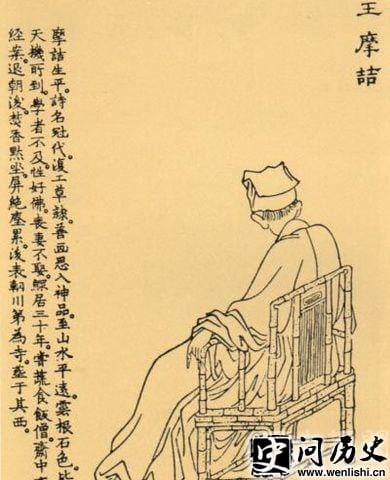 王摩詰
摩詰生平。詩名冠代。復工草隸。善画。思入神品。至山水平遠。雲根石色。
天機所到。學者不及。性好佛。喪妻不娶。鰥居三十年。嘗蔬食飯僧。齋中
經案。退朝後。焚香黙坐。屏絶塵累。後表輞川第為寺。葬于其西。
问历史
www.wenlishi.cn